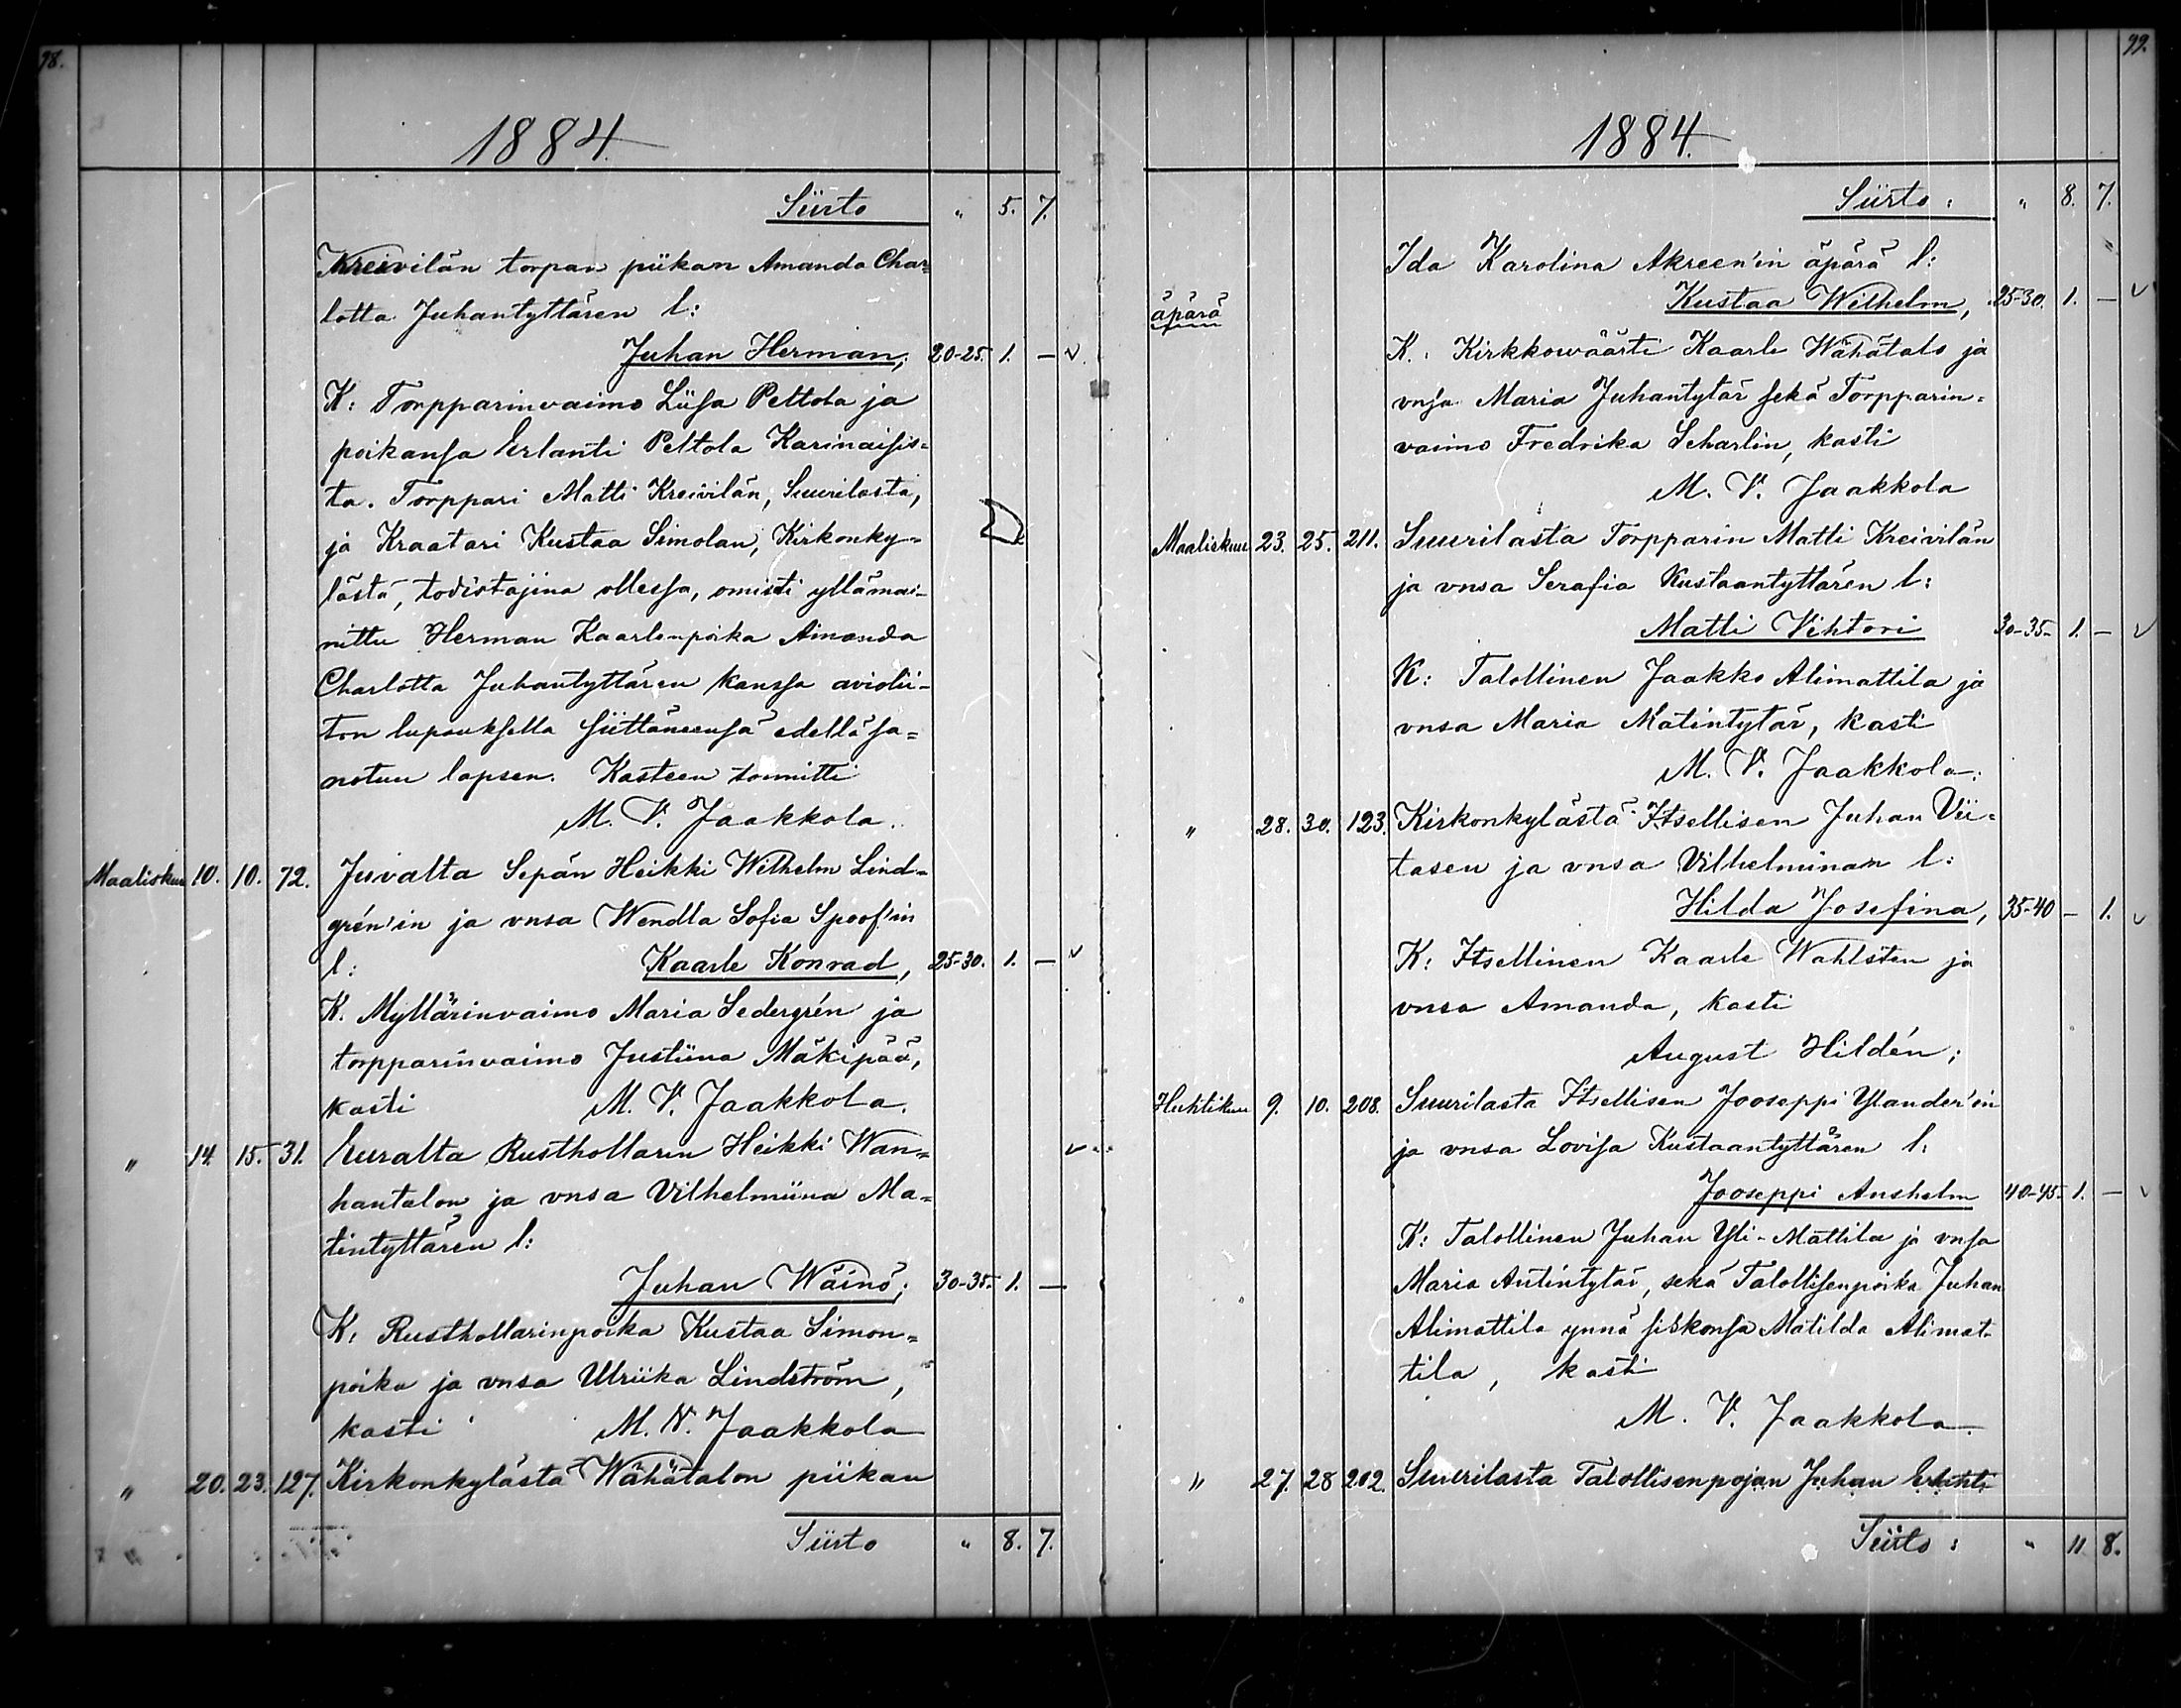 98.
1884.
Siirto " 5. 7.
Kreivilän torpan piikan Amanda Char=
lotta Juhantyttären l:
Juhan Herman, 20-25. 1. —
K: Torpparinvaimo Liisa Peltola ja
poikansa Erlanti Peltola Karinaisis=
ta. Torppari Matti Kreivilän, Suurilasta,
ja Kraatari Kustaa Simolan, Kirkonky=
lästä, todistajina ollessa, omisti yllämai-
nittu Herman Kaarlenpoika Amanda
Charlotta Juhantyttären kanssa avioli-
ton lupauksella siittäneensä edelläsa=
notun lapsen. Kasteen toimitti
M. V. Jaakkola.
Maaliskuu 10. 10. 72. Juvalta Sepän Heikki Wilhelm Lind=
grén'in ja vnsa Wendla Sofia Spoof'in
l: Kaarle Konrad, 25-30. 1. —
K. Myllärinvaimo Maria Sedergrén ja
torpparinvaimo Justiina Mäkipää,
kasti M. V. Jaakkola.
" 14. 15. 31. Euralta Rusthollarin Heikki Wan=
hantalon ja vnsa Vilhelmiina Ma=
tintyttären l:
Juhan Wäinö; 30-35. 1. —
K: Rusthollarinpoika Kustaa Simon=
poika ja vnsa Ulriika Lindström,
kasti M. V. Jaakkola
" 20. 23. 127. Kirkonkylästä Wähätalon piikan
Siirto " 8. 7.
99.
1884.
Siirto: " 8. 7.
Ida Karolina Akreen'in äpärä l:
äpärä Kustaa Wilhelm, 25-30. 1. —
K.: Kirkkowäärti Kaarle Wähätalo ja
vnsa Maria Juhantytär sekä Torpparin=
vaimo Fredrika Scharlin, kasti
M. V. Jaakkola
Maaliskuu 23. 25. 211. Suurilasta Torpparin Matti Kreivilän
ja vnsa Serafia Kustaantyttären l:
Matti Vihtori 30-35- 1. —
K: Talollinen Jaakko Alimattila ja
vnsa Maria Matintytär, kasti
M. V. Jaakkola.
" 28. 30. 123. Kirkonkylästä Itsellisen Juhan Vii=
tasen ja vnsa Vilhelminan l:
Hilda Josefina, 35-40 — 1.
K: Itsellinen Kaarle Wahlsten ja
vnsa Amanda, kasti
August Hildén;
Huhtikuu 9. 10. 208. Suurilasta Itsellisen Jooseppi Ylander'in
ja vnsa Lovisa Kustaantyttären l:
Jooseppi Anshelm 40-45- 1. —
K: Talollinen Juhan Yli-Mattila ja vnsa
Maria Antintytär, sekä Talollisenpoika Juhan
Alimattila ynnä siskonsa Matilda Alimat-
tila, kasti
M. V. Jaakkola.
" 27. 28 202. Suurilasta Talollisenpojan Juhan
Siirto: " 11 8.